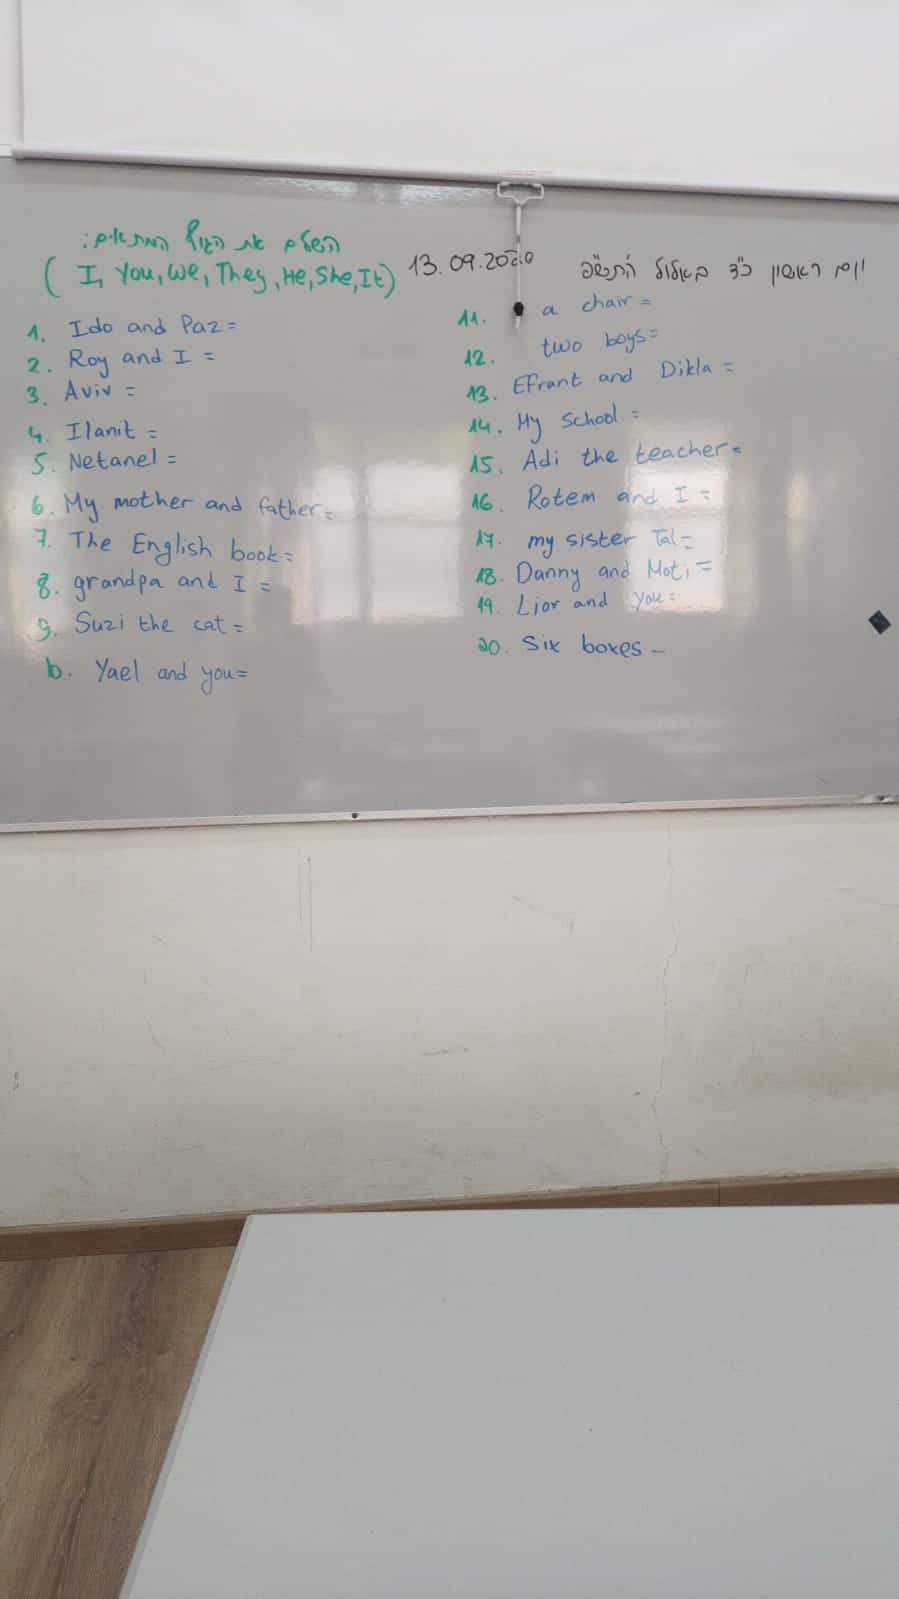 השלם את הגוף המתאים:
(I, You, We, They, He, She, It)
13.09.2020
יום ראשון כ"ד באלול התש"פ
1. Ido and Paz =
2. Roy and I =
3. Aviv =
4. Ilanit =
5. Netanel =
6. My mother and father =
7. The English book =
8. grandpa and I =
9. Suzi the cat =
10. Yael and you =
11. a chair =
12. two boys =
13. Efrant and Dikla =
14. My school =
15. Adi the teacher =
16. Rotem and I =
17. my sister Tal =
18. Danny and Moti =
19. Lior and you =
20. Six boxes -